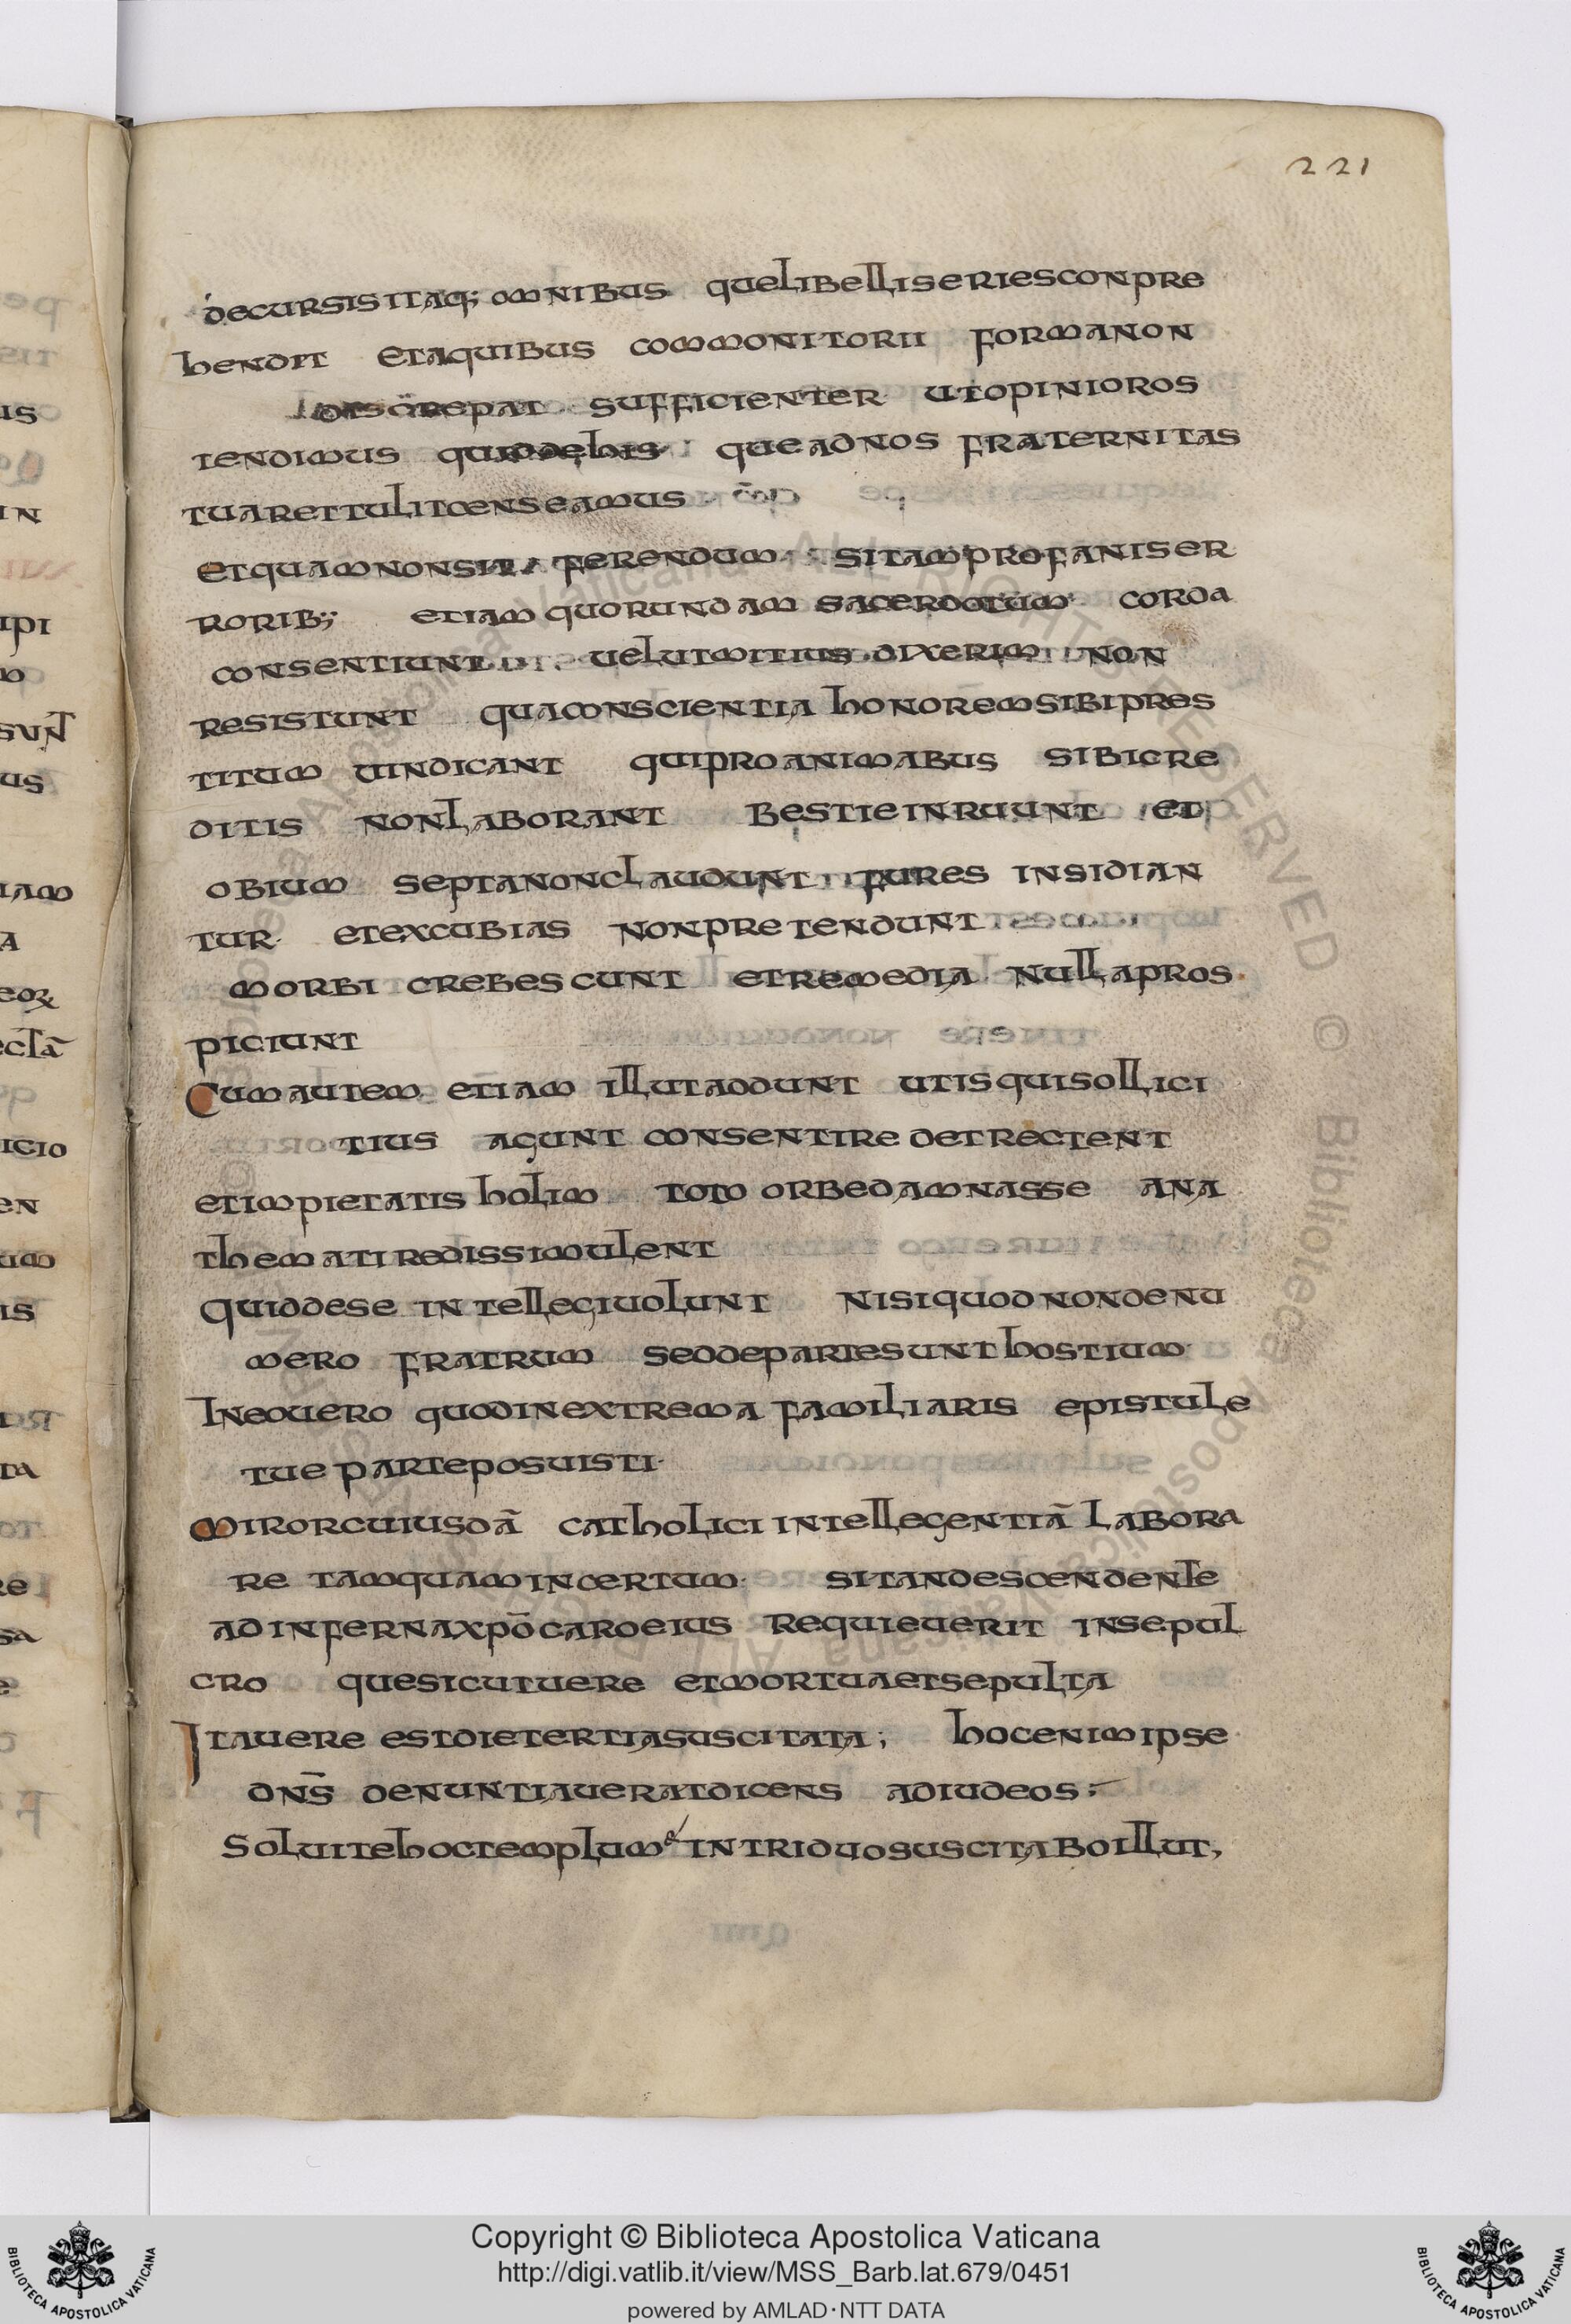 221
decursis itaq; omnibus que libelli series conpre
hendit et a quibus commonitorii forma non
discrepat sufficienter ut opinior os
tendimus quid de his que ad nos fraternitas
tua rettulit censeamus
et quam non sit ferendum si tam profanis er
rorib; etiam quorundam sacerdotum corda
consentiunt uel ut mitius dixerim non
resistunt qua conscientia honorem sibi pres
titum uindicant qui pro animabus sibi cre
ditis non laborant Bestie inruunt et
obium septa non claudunt fures insidian
tur et excubias non pretendunt
morbi crebescunt et remedia nulla pros
piciunt
Cum autem etiam illut addunt ut is qui sollici
tius agunt consentire detrectent
et impietatis holim toto orbe damnasse ana
themati redissimulent
Quid de se intellegi uolunt nisi quod non de nu
mero fratrum sed de parte sunt hostium
In eo uero quod in extrema familiaris epistule
tue parte posuisti
Miror cuiusdā catholici intellegentiā labora
re tamquam incertum sit an descendente
ad inferna xpō caro eius requieuerit in sepul
cro que sicut uere et mortua et sepulta
Ita uere est die tertia suscitata; hoc enim ipse
dn̄s denuntiauerat dicens ad iudeos:
Soluite hoc templum & in triduo suscitabo illut,
Copyright © Biblioteca Apostolica Vaticana
http://digi.vatlib.it/view/MSS_Barb.lat.679/0451
powered by AMLAD·NTT DATA
BIBLIOTECA APOSTOLICA VATICANA
BIBLIOTECA APOSTOLICA VATICANA